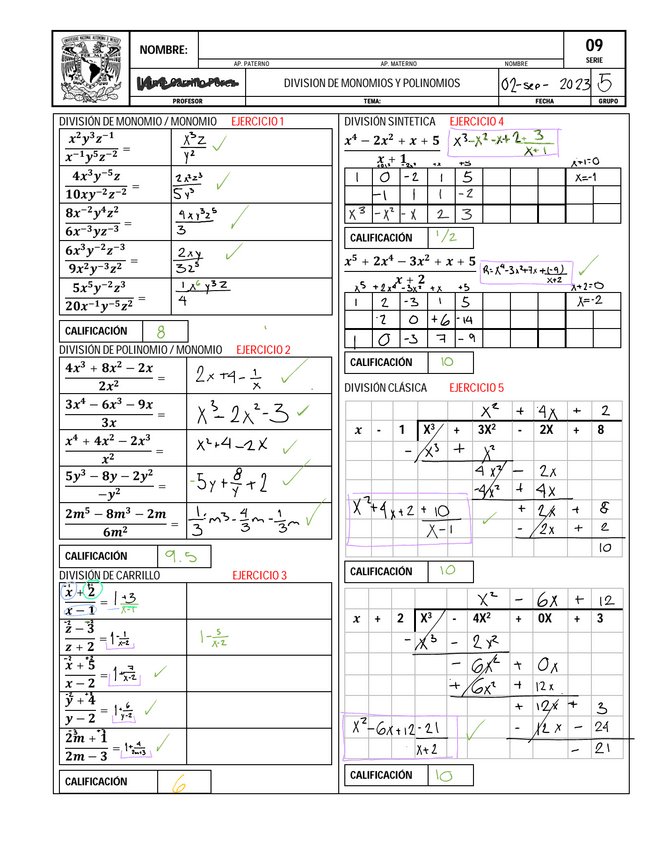 NOMBRE:
AP. PATERNO AP. MATERNO NOMBRE
09
SERIE
DIVISION DE MONOMIOS Y POLINOMIOS
02-sep-2023
5
PROFESOR TEMA: FECHA GRUPO
DIVISIÓN DE MONOMIO / MONOMIO EJERCICIO 1
x²y³z⁻¹ / x⁻¹y⁵z⁻² = x³z / y²
4x³y⁻⁵z / 10xy⁻²z⁻² = 2x²z³ / 5y³
8x⁻²y⁴z² / 6x⁻³yz⁻³ = 4xy³z⁵ / 3
6x³y⁻²z⁻³ / 9x²y⁻³z² = 2xy / 3z⁵
5x⁵y⁻²z³ / 20x⁻¹y⁻⁵z² = 1x⁶y³z / 4
CALIFICACIÓN 8
DIVISIÓN DE POLINOMIO / MONOMIO EJERCICIO 2
4x³ + 8x² − 2x / 2x² = 2x+4-1/x
3x⁴ − 6x³ − 9x / 3x = x³-2x²-3
x⁴ + 4x² − 2x³ / x² = x²+4-2x
5y³ − 8y − 2y² / −y² = -5y+8/y+2
2m⁵ − 8m³ − 2m / 6m² = 1/3 m³-4/3 m-1/3m
CALIFICACIÓN 9.5
DIVISIÓN DE CARRILLO EJERCICIO 3
x + 2 / x − 1 = 1+3/x-1
z − 3 / z + 2 = 1-1/x-2 1-5/x-2
x + 5 / x − 2 = 1+7/x-2
y + 4 / y − 2 = 1+6/y-2
2m + 1 / 2m − 3 = 1+4/2m+3
CALIFICACIÓN 6
DIVISIÓN SINTETICA EJERCICIO 4
x⁴ − 2x² + x + 5 / x + 1
x³-x²-x+2+3/x+1
x+1=0
1 0 -2 1 5 x=-1
-1 1 1 -2
x³ -x² -x 2 3
CALIFICACIÓN 1/2
x⁵ + 2x⁴ − 3x² + x + 5 / x + 2
R=x⁴-3x²+7x+(-9)/x+2
x⁵ +2x⁴ -3x² +x +5 x+2=0
1 2 -3 1 5 x=-2
-2 0 +6 -14
1 0 -3 7 -9
CALIFICACIÓN 10
DIVISIÓN CLÁSICA EJERCICIO 5
x² + 4x + 2
x - 1 X³ + 3X² - 2X + 8
- x³ + x²
4x² - 2x
-4x² + 4x
+ 2x + 8
- 2x + 2
10
x²+4x+2+10/x-1
CALIFICACIÓN 10
x² - 6x + 12
x + 2 X³ - 4X² + 0X + 3
- x³ - 2x²
- 6x² + 0x
+ 6x² + 12x
+ 12x + 3
- 12x - 24
- 21
x²-6x+12-21/x+2
CALIFICACIÓN 10